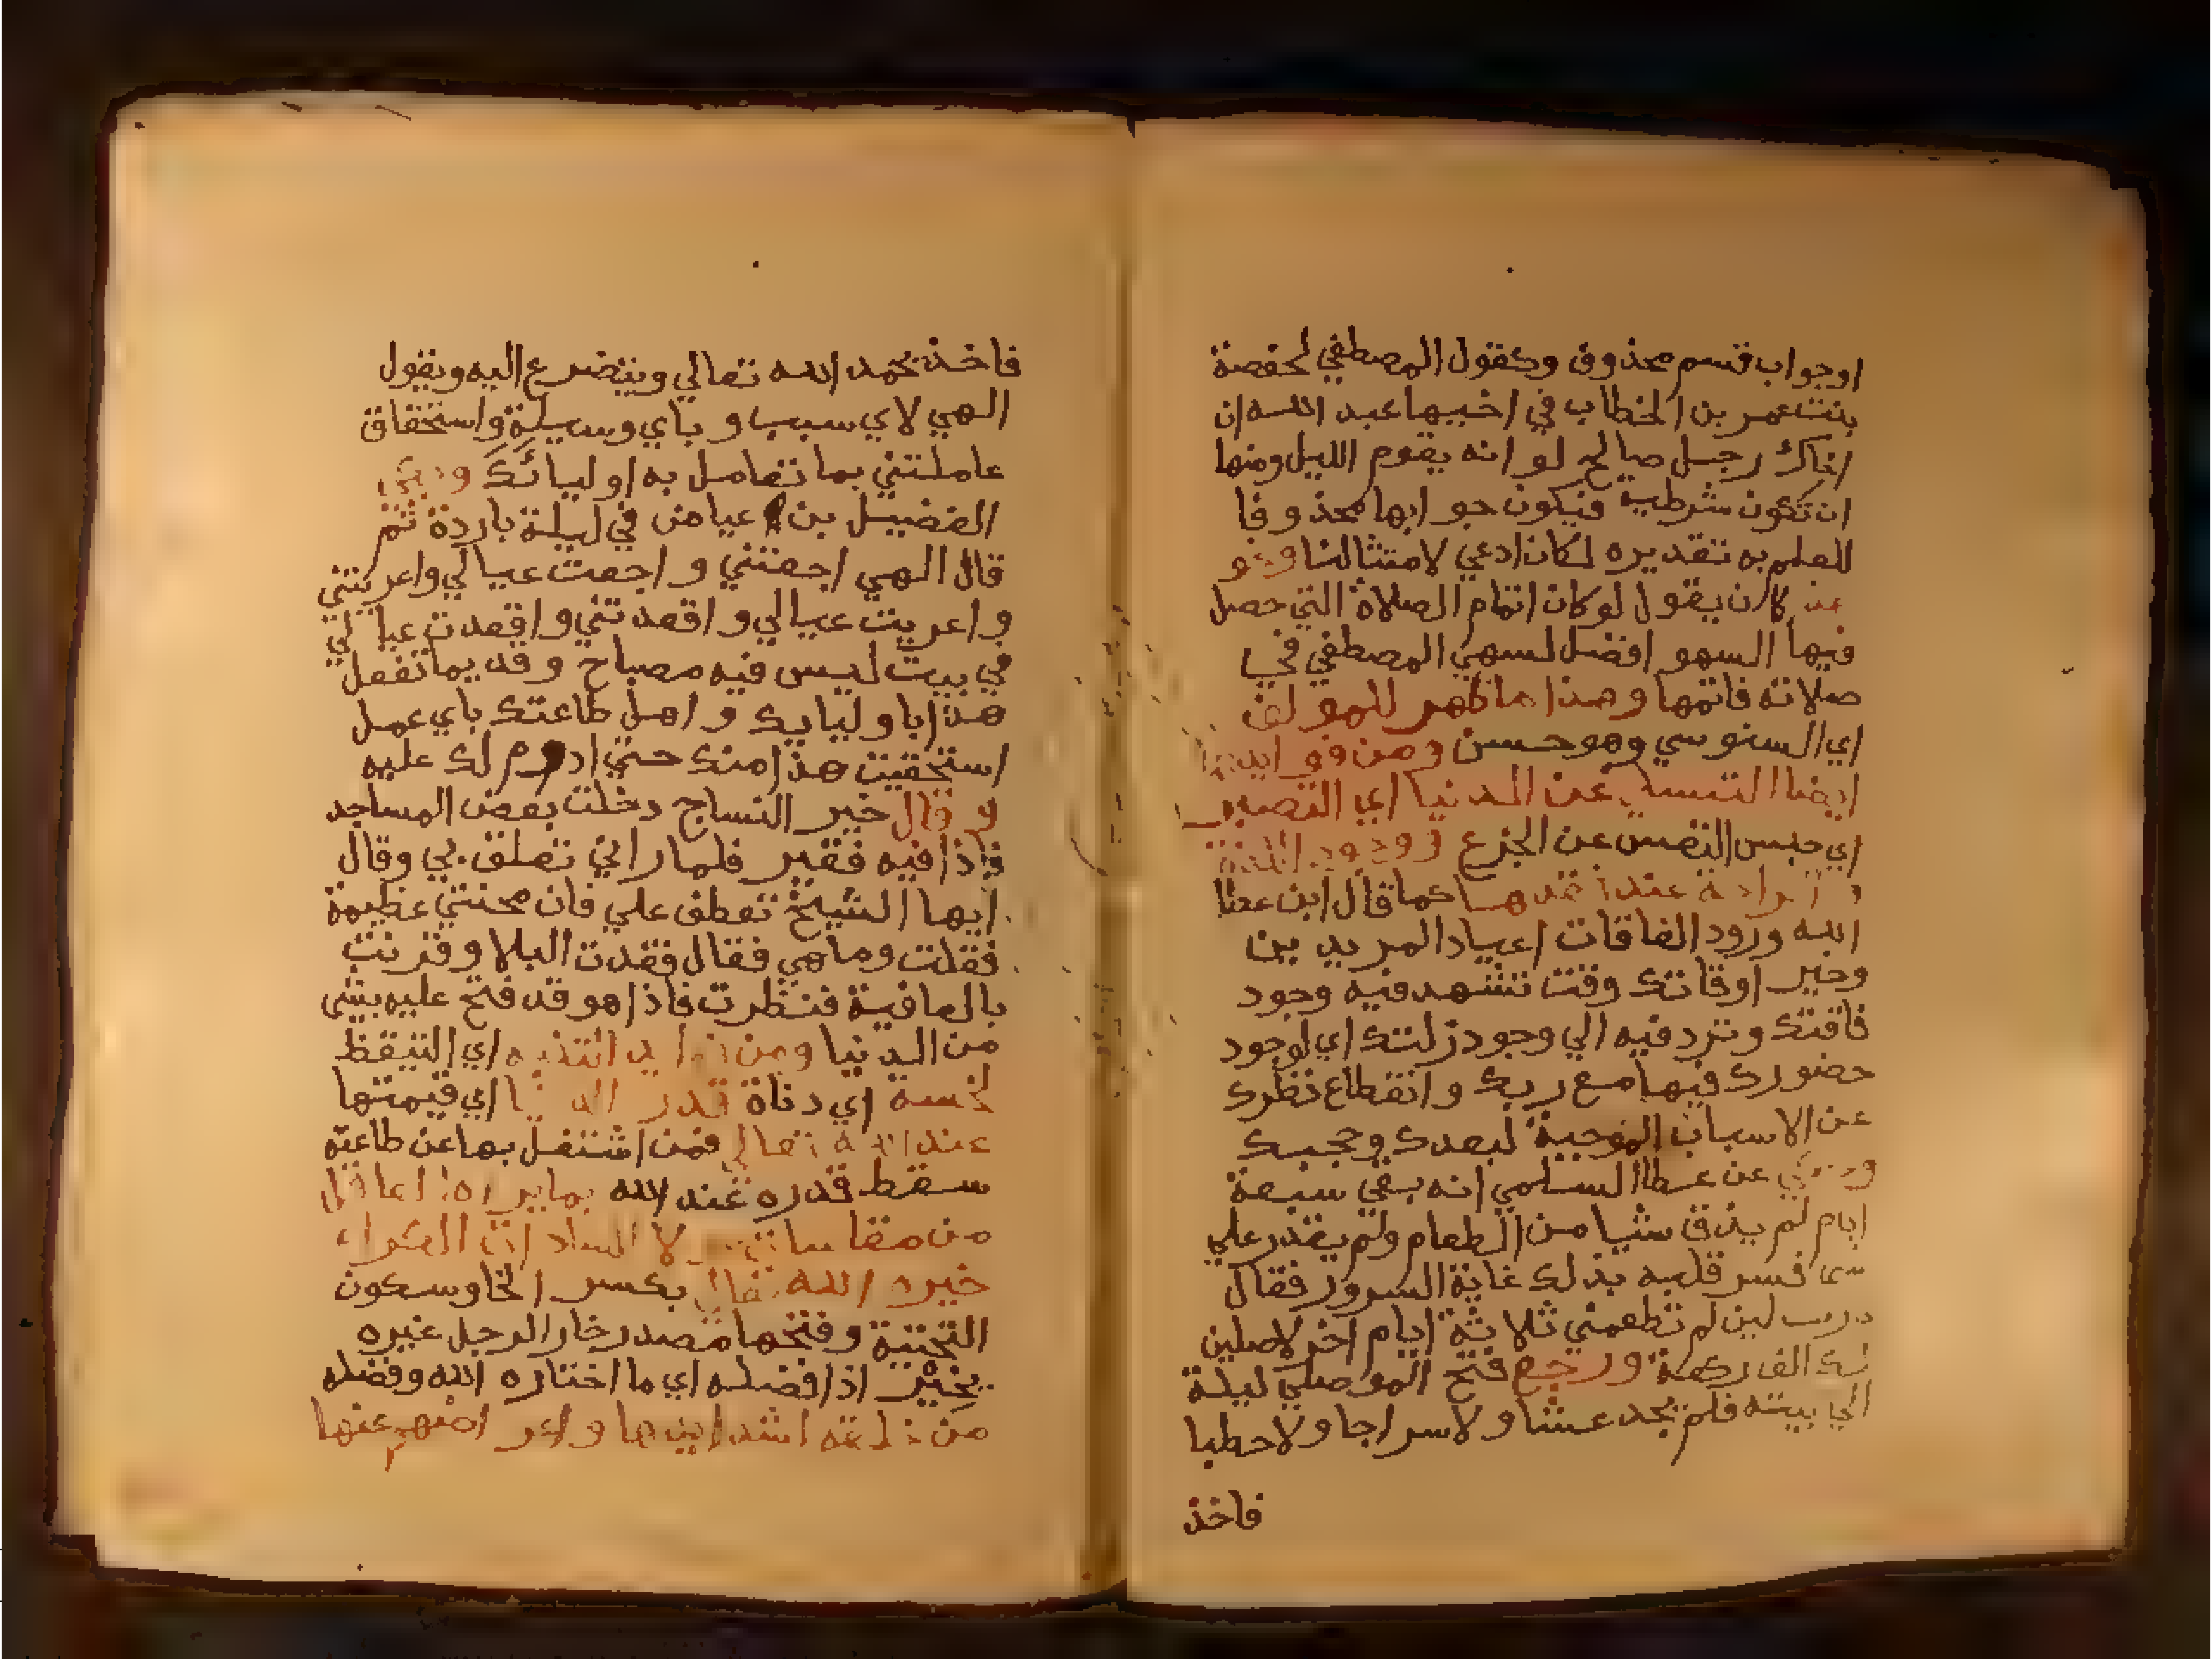 اوجواب قسم محذوف وكقول المصطفي لحفصة
بنت عمر بن الخطاب في اخيها عبد الله ان
اخاك رجل صالح لو انه يقوم الليل ومنها
ان تكون شرطية فيكون جوابها محذوفا
للعلم به تقديره لكان ادعي لامتثالنا ونحو
لان يقول لو كان اتمام الصلاة التي حصل
فيها السهو افضل لسهي المصطفي في
صلاته فاتمها وهذا ما ظهر للمولف
اي السنوسي وهو حسن ومن فوايدها
ايضا التسلي عن الدنيا اي التصبر
اي حبس النفس عن الجزع ووجود اللذة
عند فقدها كما قال ابن عطا
الله ورود الفاقات اعياد المريدين
وخير اوقاتك وقت تشهد فيه وجود
فاقتك وترد فيه الي وجود زلتك اي لوجود
حضورك فيها مع ربك وانقطاع نظرك
عن الاسباب الموجبة لبعدك وحجبك
وحكي عن عطا السلمي انه بقي سبعة
ايام لم يذق شيا من الطعام ولم يقدر علي
فسر قلبه بذلك غاية السرور فقال
لين لم تطعمني ثلاثة ايام اخر لاصلين
لك الف ركعة ورجع فتح الموصلي ليلة
الي بيته فلم يجد عشاولا سراجا ولا حطبا
فاخذ
فاخذ يحمد الله تعالي ويتضرع اليه ويقول
الهي لاي سبب وباي وسيلة واستحقاق
عاملتني بما تعامل به اوليائك وبكي
الفضيل بن عياض في ليلة باردة ثم
قال الهي اجعتني واجعت عيالي واعريتني
واعريت عيالي واقعدتني واقعدت عيالي
في بيت ليس فيه مصباح وقديما تفعل
هذا باوليايك واهل طاعتك باي عمل
استحقيت هذا منك حتي ادوم لك عليه
وقال خير النساج دخلت بعض المساجد
فاذا فيه فقير فلما راني تعلق بي وقال
ايها الشيخ تعطف علي فان محنتي عظيمة
فقلت وما هي فقال فقدت البلا وقرنت
بالعافية فنظرت فاذا هو قد فتح عليه بشي
من الدنيا ومن فوايد التنبه اي التيقظ
لخسة اي دناة قدر الدنيا اي قيمتها
عند الله تعالي فمن اشتغل بها عن طاعته
سقط قدره عند الله بما يراه العاقل
من مقاسات السادات الكرام
خيره الله تعالي بكسر الخا وسكون
التحتية وفتحها مصدر خار الرجل غيره
بخير اذا فضله اي ما اختاره الله وفضله
من خلقه اشدايدها واعراضهم عنها